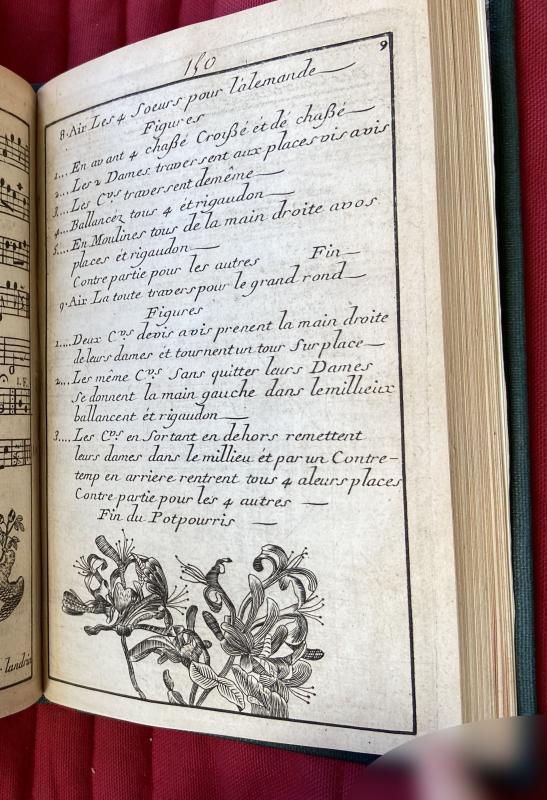 150
9
8. Air Les 4 Soeurs pour l'alemande
Figures
1... En avant 4 chaßé Croißé et dé chaßé
2... Les 2 Dames traversent aux places vis avis
3... Les C.vs traversent demême
4... Ballancéz tous 4 ét rigaudon
5... En Moulines tous de la main droite avos
places ét rigaudon
Contre partie pour les autres Fin
9. Air La toute travers pour le grand rond
Figures
1... Deux C.vs devis avis prenent la main droite
de leurs dames ét tournent un tour Sur place
2... Les même C.vs Sans quitter leurs Dames
Se donnent la main gauche dans le millieux
ballancent ét rigaudon
3... Les C.vs en Sortant en dehors remettent
leurs dames dans le millieu ét par un Contre-
temp en arriere rentrent tous 4 a leurs places
Contre partie pour les 4 autres
Fin du Potpourris
landrin